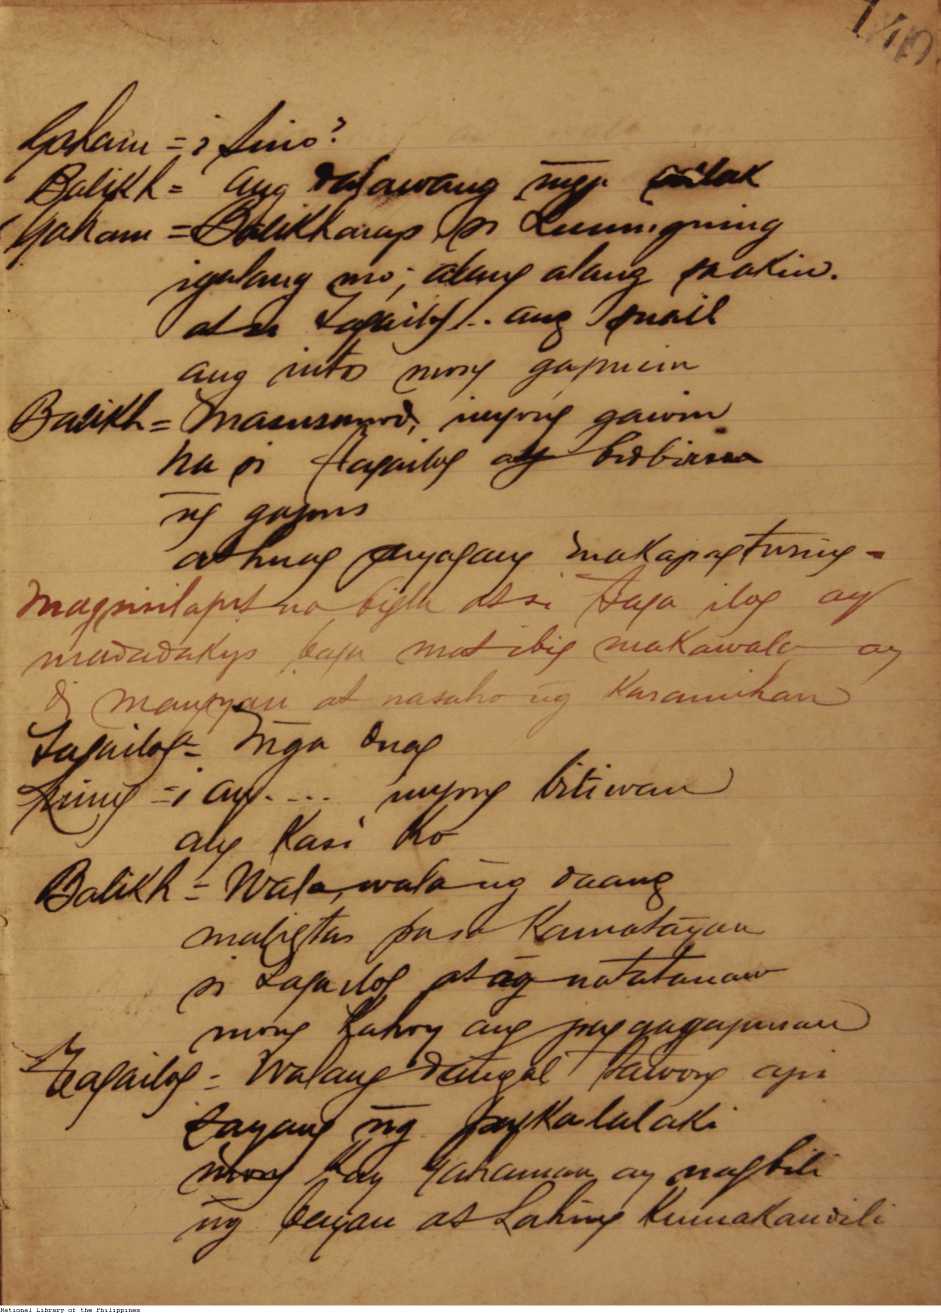 140
Gaham = ¿ Sino?
Balikh = ang dalawang mga
Gaham = Balikharap si Luningning
igalang mo; alang alang sa akin.
at si Tagailog... ang suail
ang intos mong gapusin
Balikh = Masusunod, inyong gawin
na si Tagailog ay bidbirin
ng gapus
at huag payagang makapagturing =
Magsisilapit na bigla at si Taga ilog ay
madadakip baga mat ibig makawala ay
di mangyari at nasaho ng karamihan
Tagailog = Mga duag
Ning = ¡ ay.... inyong bitiwan
ang Kasi Ko
Balikh = Wala, wala ng daang
maligtas pa sa Kamatayan
si Tagailog at ang natatanaw
mong Kahoy ang pag gagapusan
Tagailog = Walang dangal tawong api
sayang ng pagkalalaki
mong Kay Gahaman ay nagbili
ng bayan at Lahing Kumakandili
National Library of the Philippines